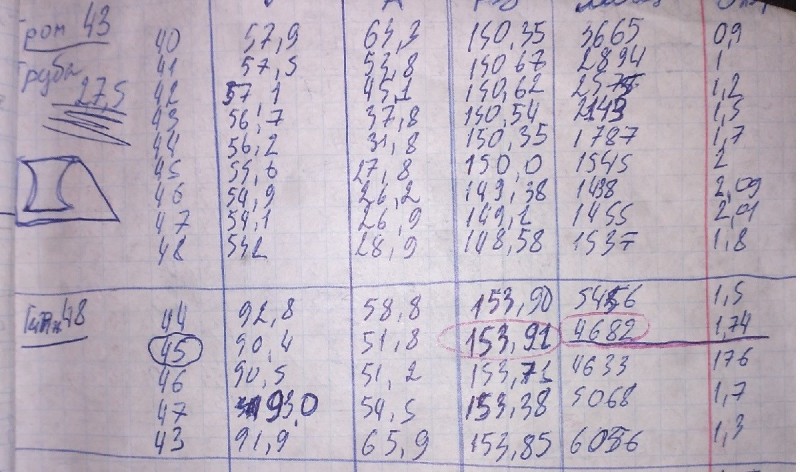 Гром 43
40 57,9 63,3 150,35 3665 0,9
Труба 41 57,5 53,8 150,67 2894 1
27,5 42 57,1 45,1 150,62 1,2
43 56,7 37,8 150,54 2143 1,5
44 56,2 31,8 150,35 1787 1,7
45 55,6 27,8 150,0 1545 2
46 54,9 26,2 149,38 2,09
47 54,1 26,9 149,1 1455 2,01
48 542 28,9 148,58 1537 1,8
48 44 92,8 58,8 153,90 1,5
45 90,4 51,8 153,91 4682 1,74
46 90,5 51,2 4633 176
47 93,0 54,5 153,38 5068 1,7
43 91,9 65,9 153,85 1,3